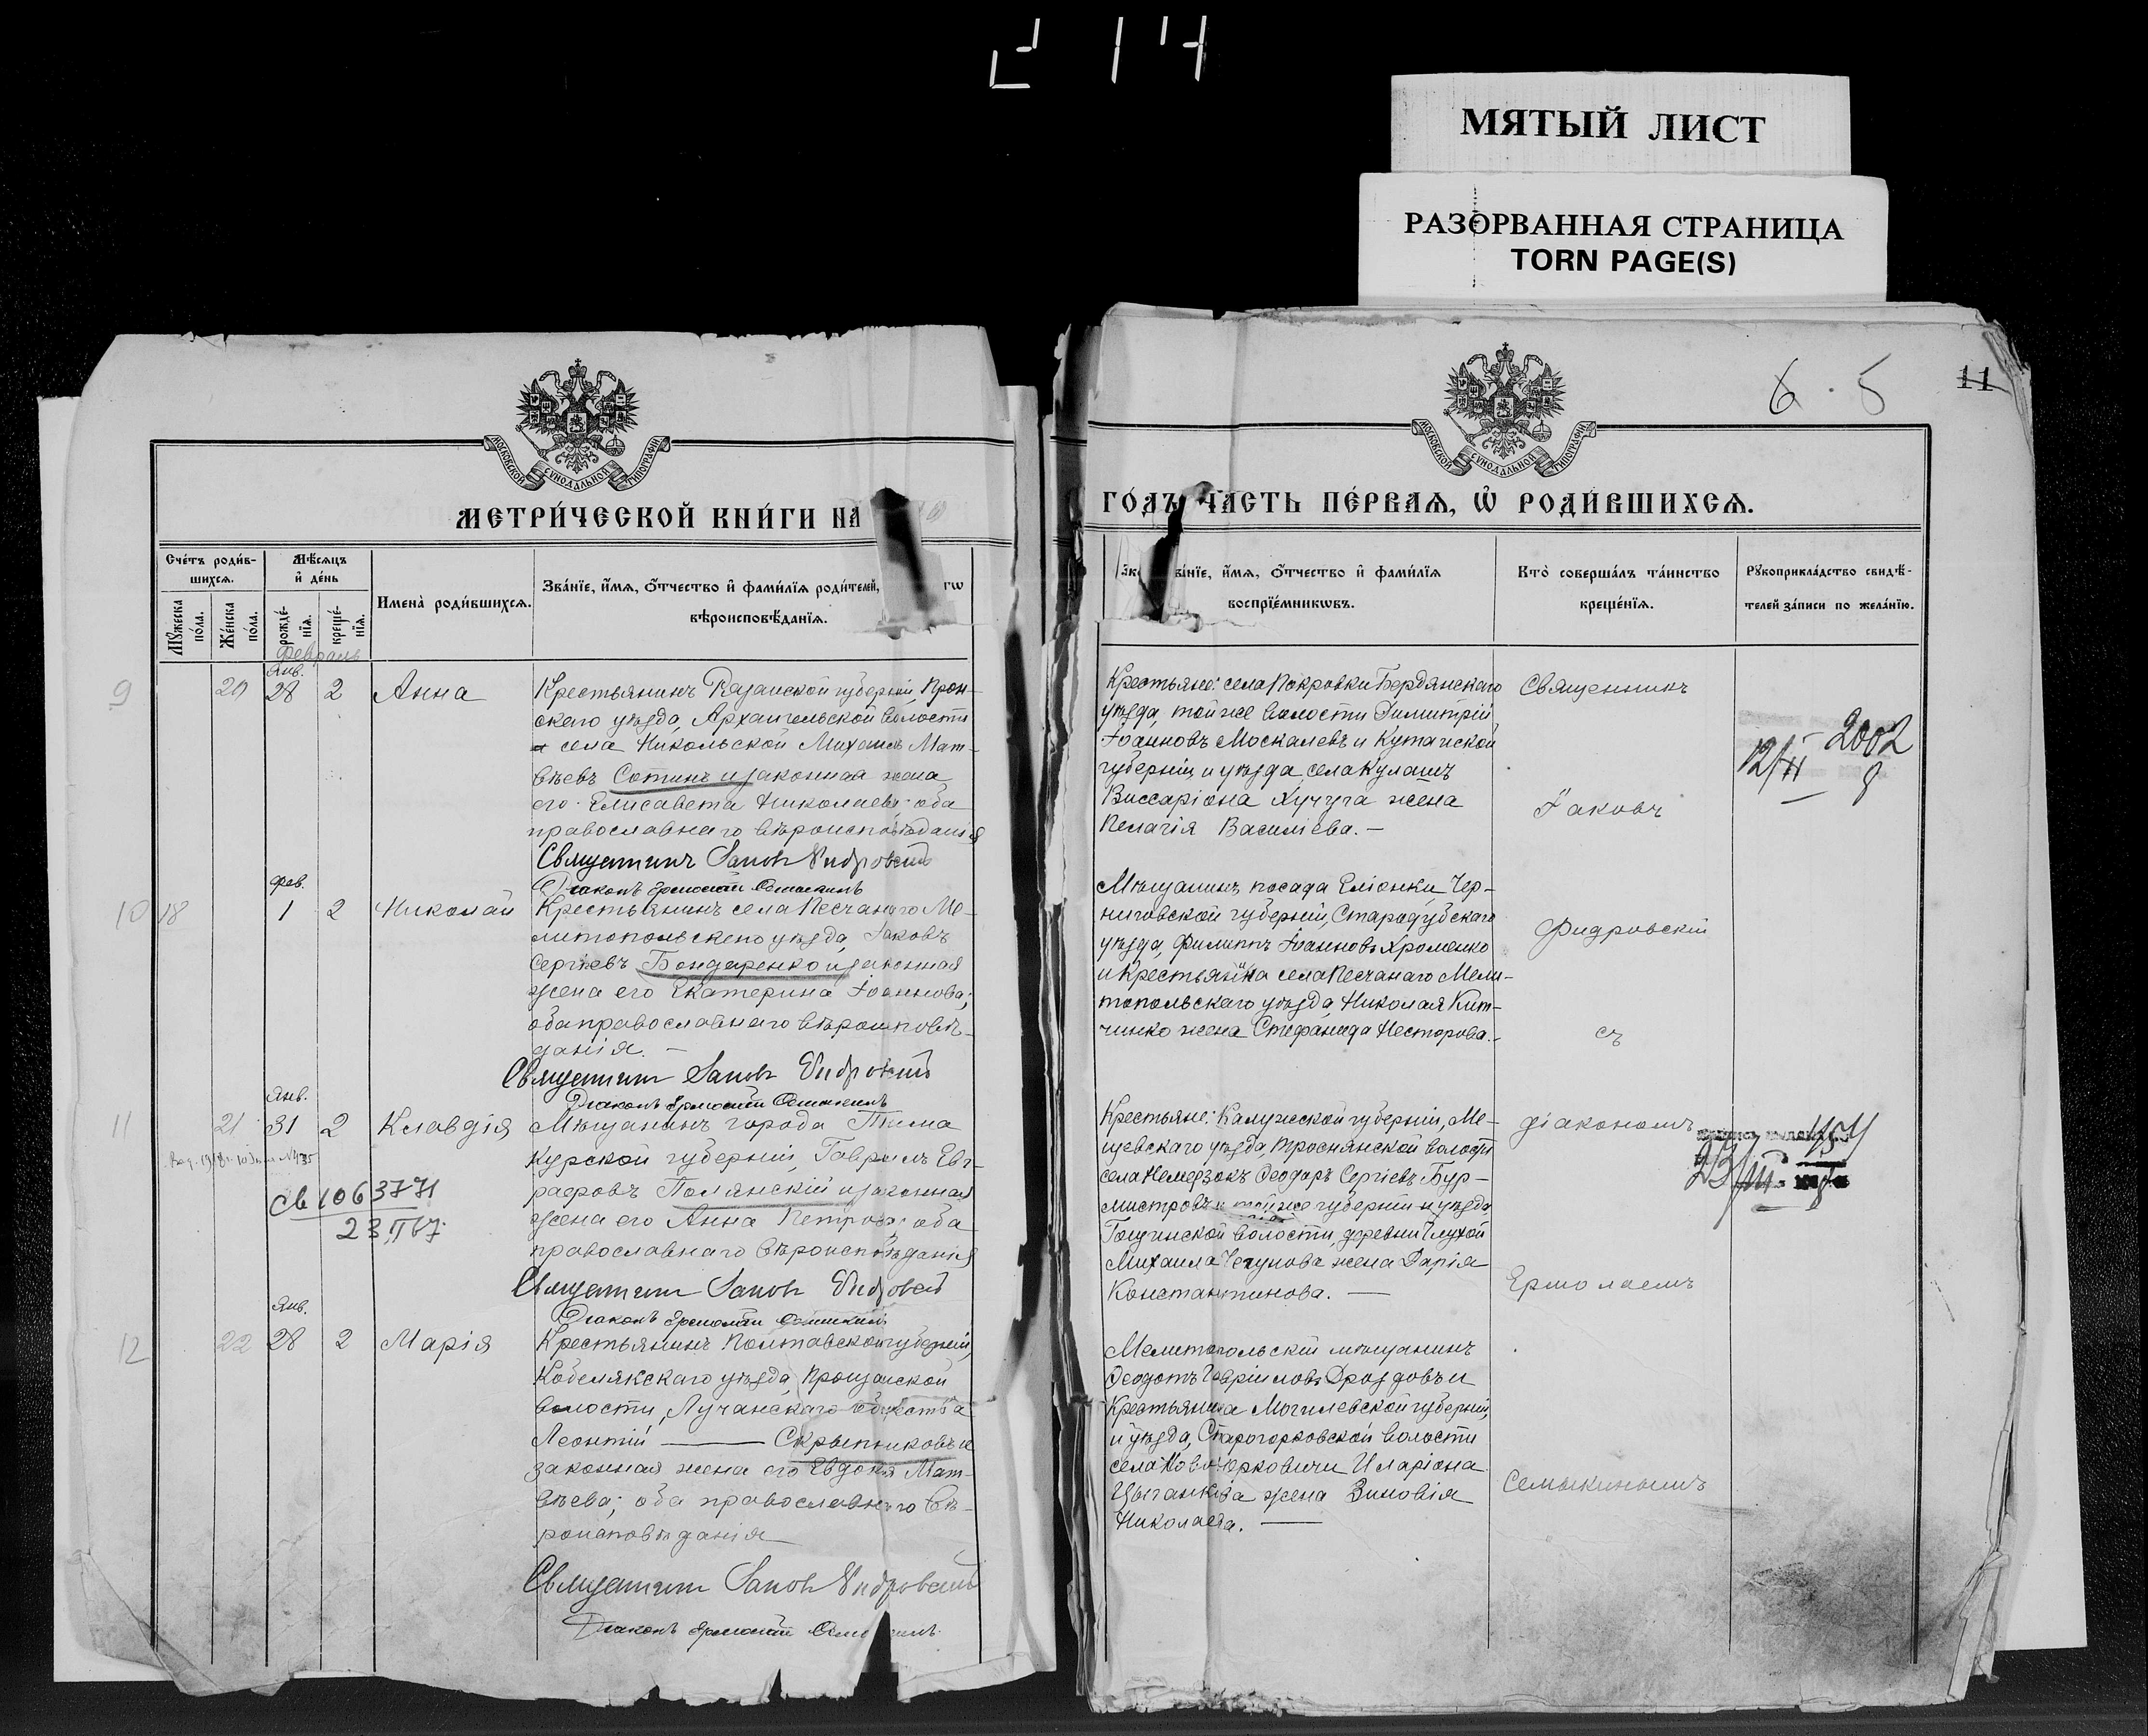 МЯТЫЙ ЛИСТ
РАЗОРВАННАЯ СТРАНИЦА
TORN PAGE(S)
МОСКОВСКОЙ СУНОДАЛЬНОЙ ТИПОГРАФІИ
МЕТРИ́ЧЕСКОЙ КНИ́ГИ НА
Сче́тъ роди́в-
шихсѧ.
Мѣ́сѧцъ
и҆ де́нь
Мꙋ́жеска по́ла.
Же́нска по́ла.
рожде́-
нїѧ.
креще́-
нїѧ.
Имена̀ роди́вшихсѧ.
Зва́нїе, и҆́мѧ, ѻ҆́тчество и҆ фами́лїѧ роди́телей,
гѡ
вѣроисповѣ́данїѧ.
Февраль
9
20
Янв.
28
2
Анна
Крестьянинъ Рязанской губерніи, Прон-
скаго уѣзда, Архангельской волости
села Никольской Михаилъ Мат-
вѣевъ Сотинъ и законная жена
его Елисавета Николаева; оба
православнаго вѣроисповѣданія
Священникъ Іаковъ Фидровскій
Діаконъ Ермолай Семыкинъ
10
18
Фев.
1
2
Николай
Крестьянинъ села Песчанаго Ме-
литопольскаго уѣзда, Іаковъ
Сергіевъ Бондаренко и законная
жена его Екатерина Іоаннова;
оба православнаго вѣроисповѣ-
данія. —
Священникъ Іаковъ Фидровскій
Діаконъ Ермолай Семыкинъ
11
21
Янв.
31
2
Клавдія
Мѣщанинъ города Тима
Курской губерніи, Гавріилъ Евг-
рафовъ Полянскій и законная
жена его Анна Петрова; оба
православнаго вѣроисповѣданія
св 1063771
23 IV 67
Священникъ Іаковъ Фидровскій
Діаконъ Ермолай Семыкинъ
12
22
Янв.
28
2
Марія
Крестьянинъ Полтавской губерніи,
Кобелякскаго уѣзда,
волости, Лучанскаго общества
Леонтій — Скрыпниковъ и
законная жена его Евдокія Мат-
вѣева; оба православнаго вѣ-
роисповѣданія
Священникъ Іаковъ Фидровскій
Діаконъ Ермолай
6 . 5
11
МОСКОВСКОЙ СУНОДАЛЬНОЙ ТИПОГРАФІИ
ГО́ДЪ ЧА́СТЬ ПЕ́РВАѦ, Ѡ҆ РОДИ́ВШИХСѦ.
ва́нїе, и҆́мѧ, ѻ҆́тчество и҆ фами́лїѧ
воспрїе́мникѡвъ.
Кто̀ соверша́лъ та́инство
креще́нїѧ.
Рꙋкоприкла́дство свидѣ́-
телей за́писи по жела́нїю.
Крестьяне: села Покровки Бердянскаго
уѣзда, той же волости Димитрій
Іоанновъ Москалевъ и Кутаиской
губерніи и уѣзда, села Кулашъ
Виссаріона Хучуга жена
Пелагія Василіева. —
Мѣщанинъ посада Еліонки, Чер-
ниговской губерніи, Стародубскаго
уѣзда, Филиппъ Іоанновъ Хроменко
и крестьянина села Песчанаго Мели-
топольскаго уѣзда, Николая Кит-
ченко жена Стефанида Несторова. -
Крестьяне: Калужской губерніи, Ме-
щевскаго уѣзда,
села Немерзокъ Ѳеодоръ Сергіевъ Бур-
мистровъ и той же губерніи и уѣзда,
волости, деревни Глухой
Михаила Чегунова жена Дарія
Константинова. —
Мелитопольскій мѣщанинъ
Ѳеодотъ Гавріиловъ Дроздовъ и
крестьянина Могилевской губерніи,
и уѣзда, волости
села Илларіона
Цыганкова жена Зиновія
Николаева. —
Священникъ
Іаковъ
Фидровскій
съ
діакономъ
Ермолаемъ
Семыкинымъ
2002
12/II